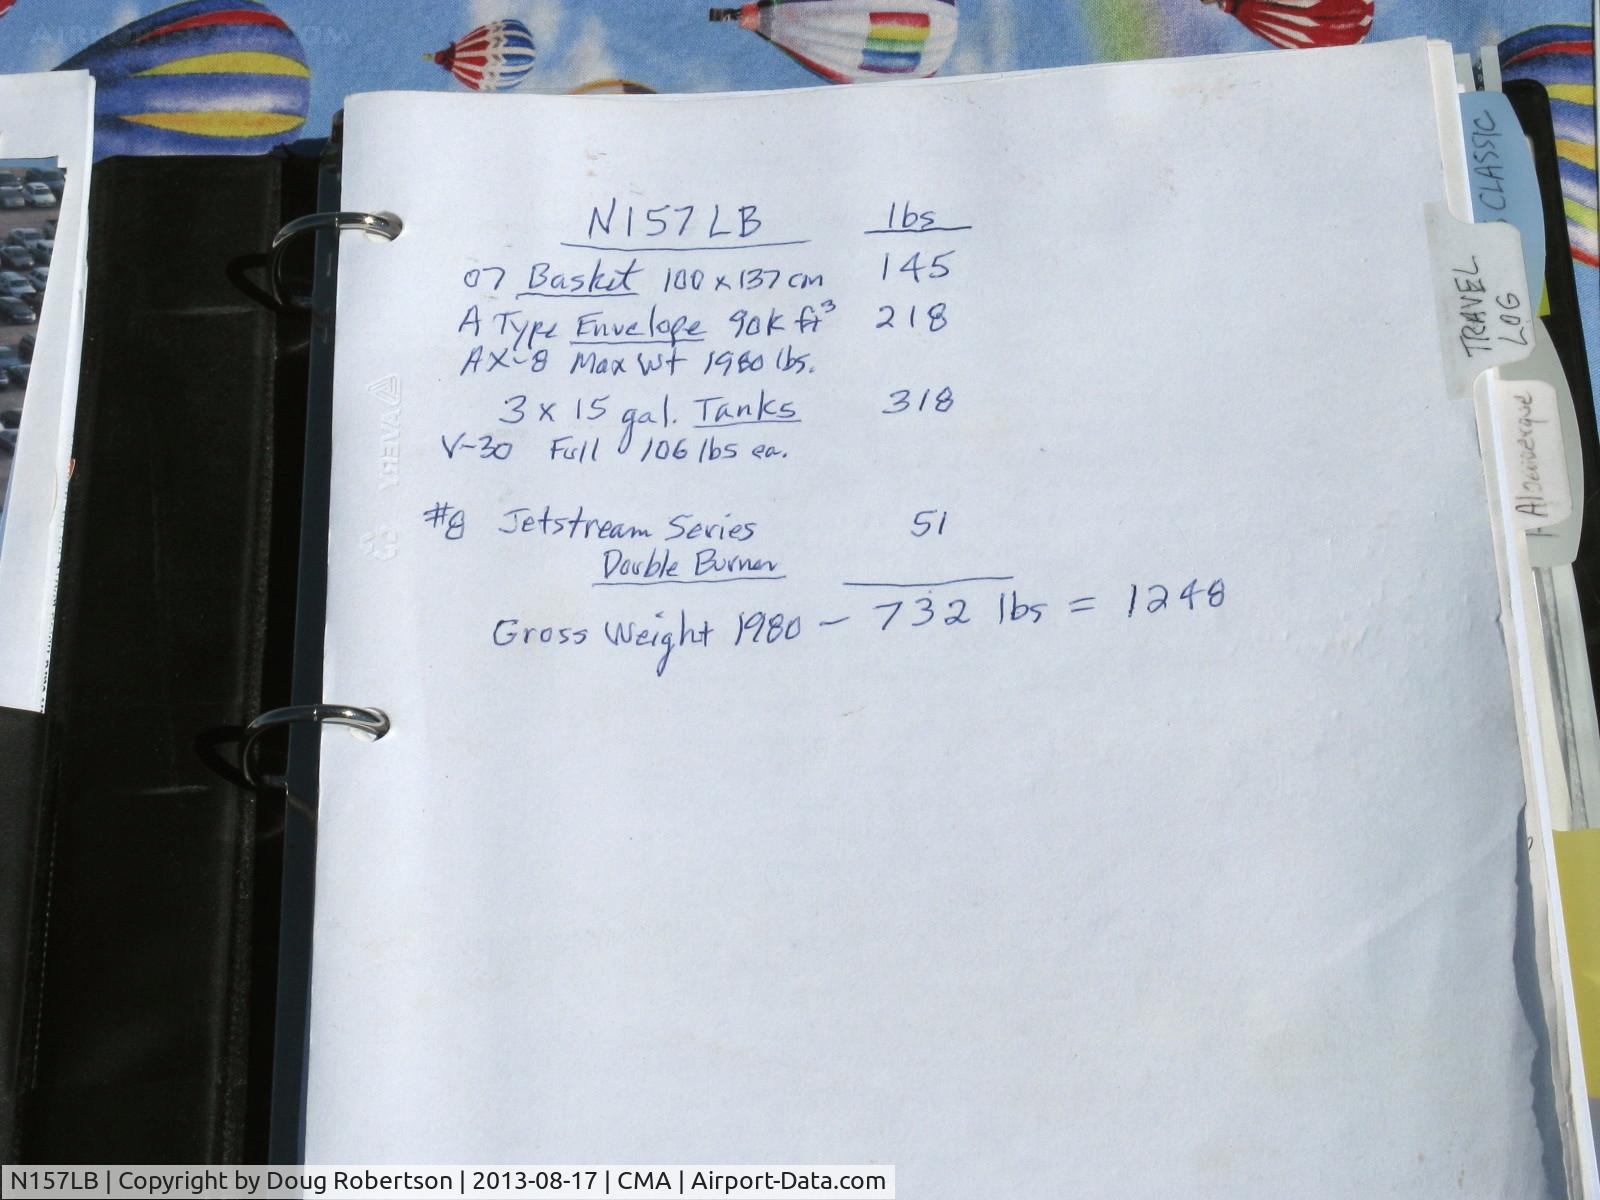 AIRPORT-DATA.COM
N157LB lbs
07 Basket 100 x 137 cm 145
A Type Envelope 90K ft³ 218
AX-8 Max Wt 1980 lbs.
3 x 15 gal. Tanks 318
V-30 Full 106 lbs ea.
#8 Jetstream Series 51
Double Burner
Gross Weight 1980 - 732 lbs = 1248
AVERY
CLASSIC
TRAVEL
LOG
Albuquerque
N157LB | Copyright by Doug Robertson | 2013-08-17 | CMA | Airport-Data.com